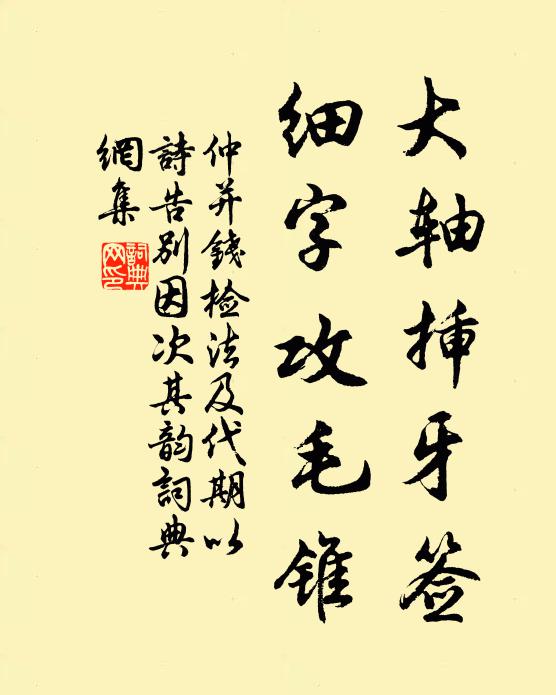 大轴插牙签
细字攻毛锥
仲并钱检法及代期以
詩告别因次其韵詞典
網集
詞典網印